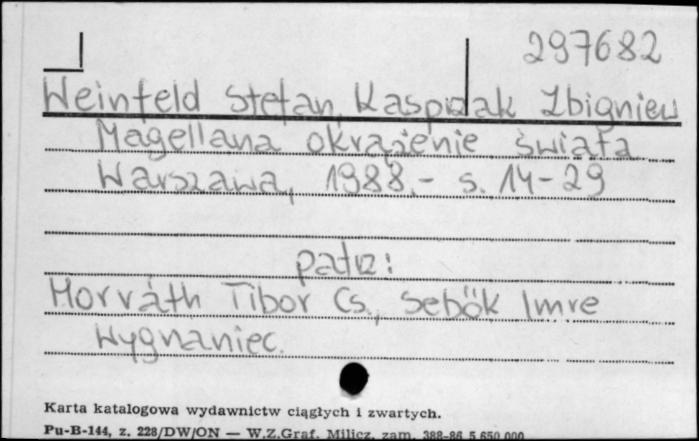 297682
Weinfeld Stefan, Kasprzak Zbigniew
Magellana okrążenie świata
Warszawa, 1988.- s. 14-29
patrz:
Horváth Tibor Cs., Sebök Imre
Wygnaniec.
Karta katalogowa wydawnictw ciągłych i zwartych.
Pu-B-144, z. 228/DW/ON — W.Z.Graf. Milicz, zam. 388-86 5 650 000